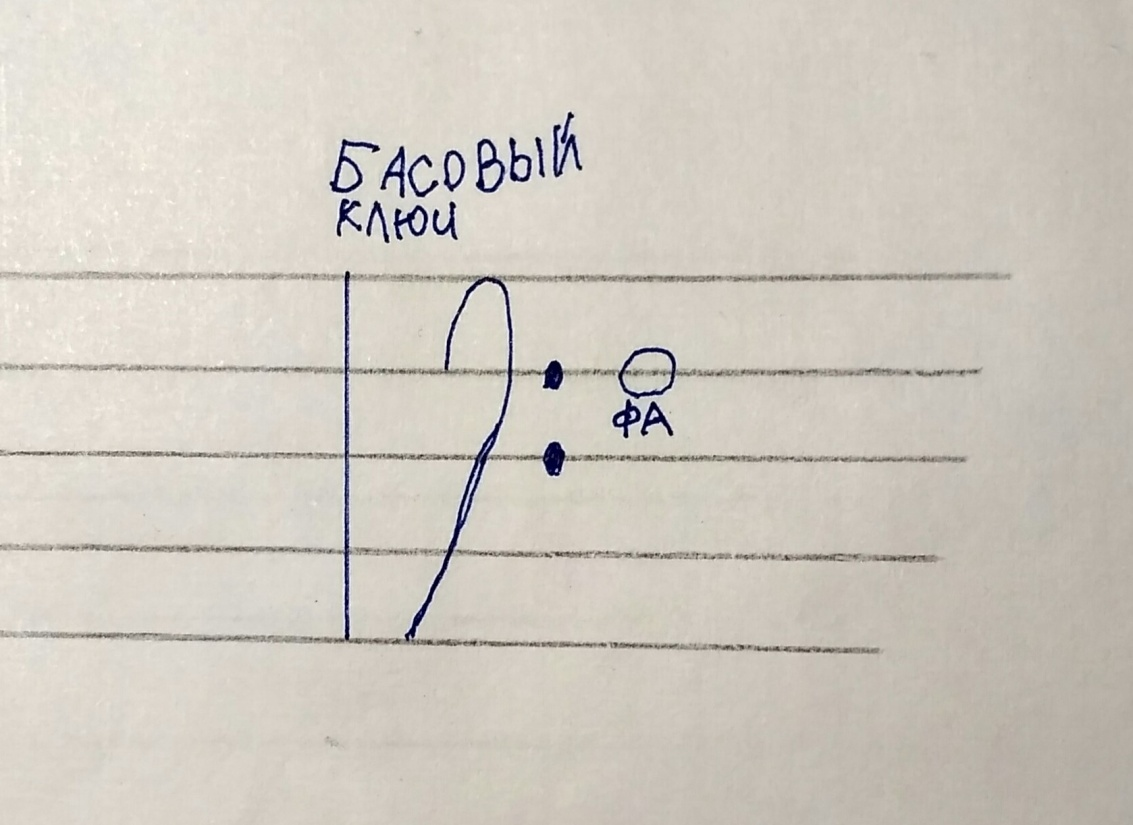 БАСОВЫЙ
КЛЮЧ
ФА